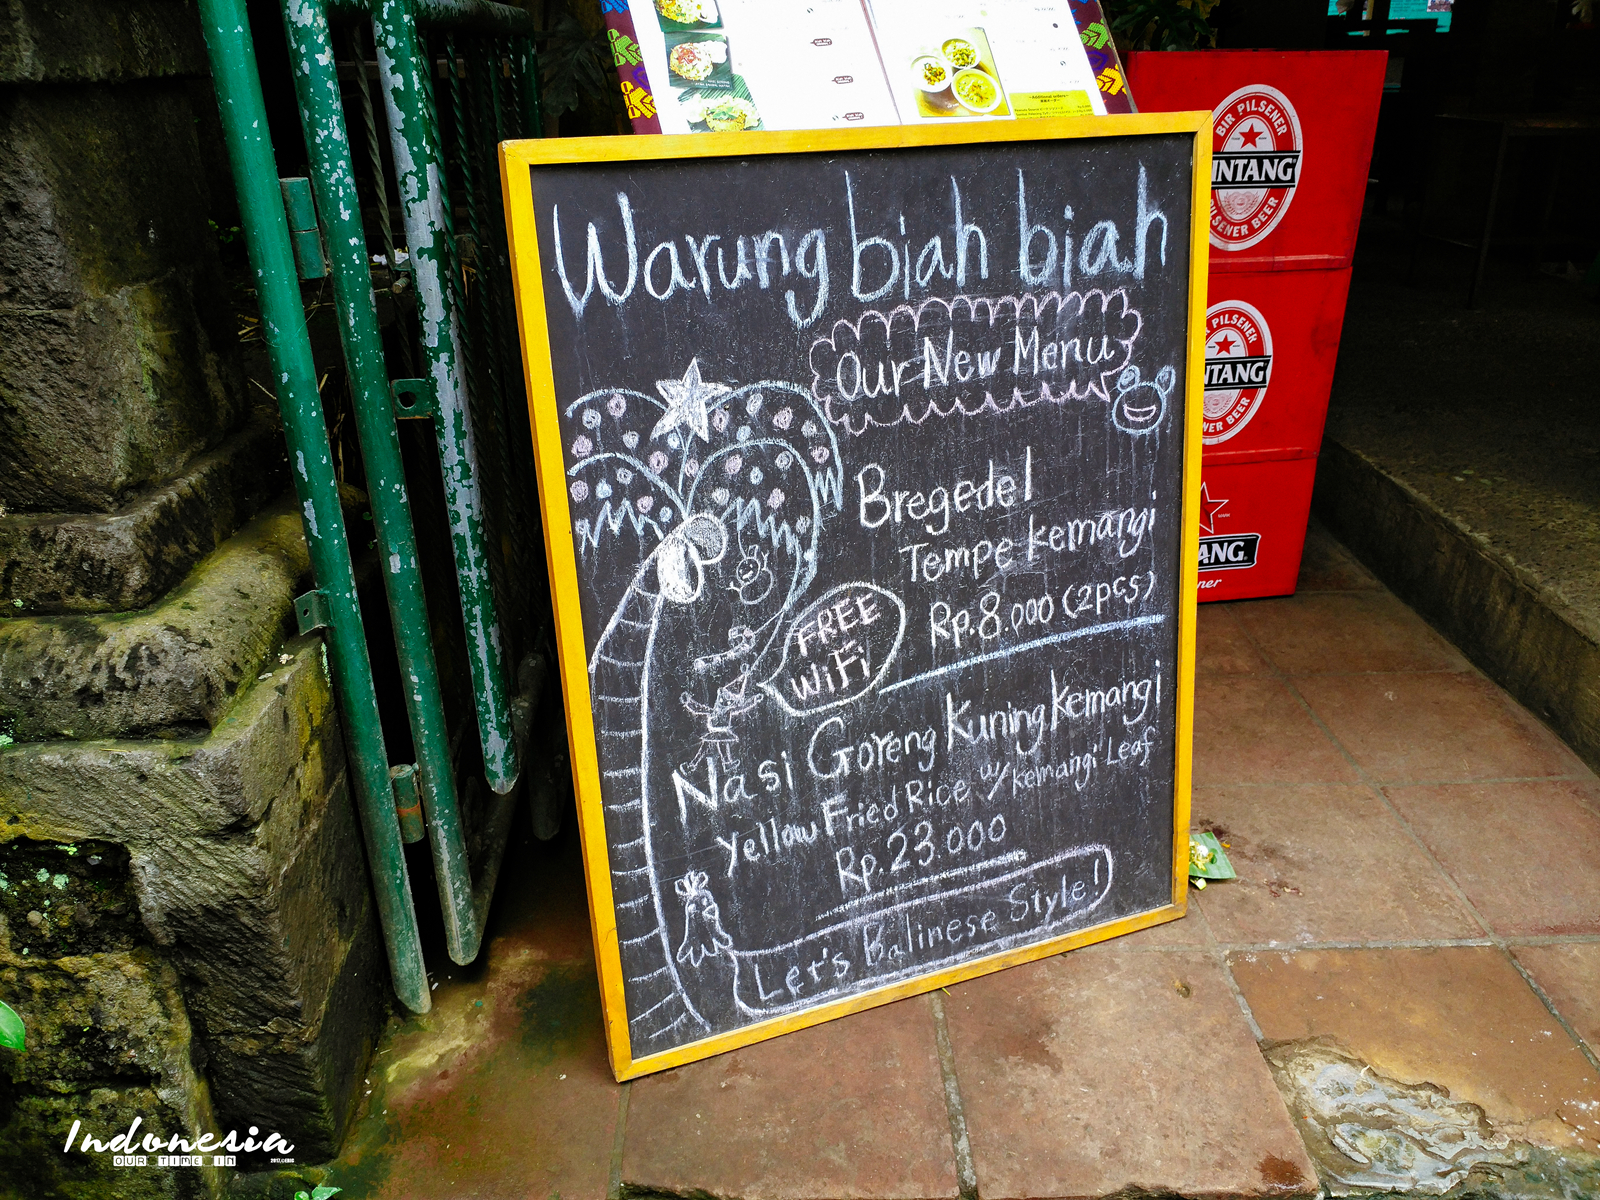 ~Additional orders~
BIR PILSENER
INTANG
PILSENER BEER
PILSENER
NTANG
NER BEER
ANG.
ner
Warung biah biah
Our New Menu
Bregedel
Tempe kemangi
Rp.8.000 (2pcs)
FREE
WiFi
Nasi Goreng Kuning Kemangi
Yellow Fried Rice w/ kemangi Leaf
Rp.23.000
Let's Balinese Style!
Indonesia
OUR TIME IN